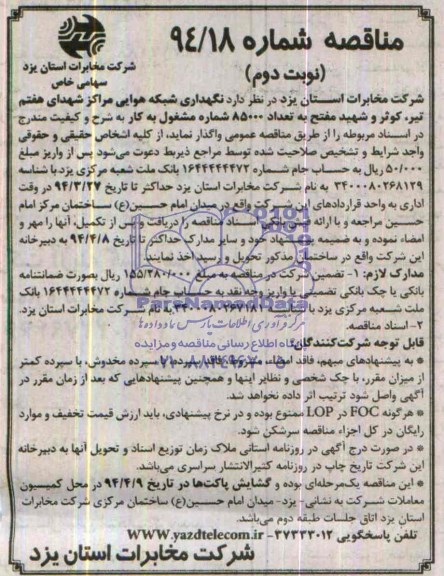 مناقصه شماره ۹۴/۱۸
(نوبت دوم)
شرکت مخابرات استان یزد
سهامی خاص
شرکت مخابرات استان یزد در نظر دارد نگهداری شبکه هوایی مراکز شهدای هفتم
تیر، کوثر و شهید مفتح به تعداد ۸۵۰۰۰ شماره مشغول به کار به شرح و کیفیت مندرج
در اسناد مربوطه را از طریق مناقصه عمومی واگذار نماید، از کلیه اشخاص حقیقی و حقوقی
واجد شرایط و تشخیص صلاحیت شده توسط مراجع ذیربط دعوت می‌شود پس از واریز مبلغ
۵۰/۰۰۰ ریال به حساب جام شماره ۱۶۴۴۴۴۴۴۷۲ بانک ملت شعبه مرکزی یزد با شناسه
۳۴۰۰۰۸۰۲۶۸۱۲۹ به نام شرکت مخابرات استان یزد حداکثر تا تاریخ ۹۴/۳/۲۷ در وقت
اداری به واحد قراردادهای این شرکت واقع در میدان امام حسین(ع) ساختمان مرکز امام
حسین مراجعه و با ارائه بانکی اسناد مناقصه را دریافت و پس از تکمیل، آنها را مهر و
امضاء نموده و به ضمیمه پیشنهاد خود و سایر مدارک حداکثر تا تاریخ ۹۴/۴/۸ به دبیرخانه
این شرکت واقع در ساختمان مذکور تحویل و رسید اخذ نمایند.
مدارک لازم: ۱- تضمین شرکت در مناقصه به مبلغ ۱۵۵/۲۸۰/۰۰۰ ریال بصورت ضمانتنامه
بانکی یا چک بانکی تضمینی یا واریز وجه نقد به حساب جام شماره ۱۶۴۴۴۴۴۴۷۲ بانک
ملت شعبه مرکزی یزد با شناسه به نام شرکت مخابرات استان یزد.
۲- اسناد مناقصه.
قابل توجه شرکت‌کنندگان:
* به پیشنهادهای مبهم، فاقد امضاء، مشروط، سپرده مخدوش، یا سپرده کمتر
از میزان مقرر، یا چک شخصی و نظایر اینها و همچنین پیشنهادهایی که بعد از زمان مقرر در
آگهی واصل شود ترتیب اثر داده نخواهد شد.
* هرگونه FOC در LOP ممنوع بوده و در نرخ پیشنهادی، باید ارزش قیمت تخفیف و موارد
رایگان در کل اجزاء مناقصه سرشکن شود.
* در صورت درج آگهی در روزنامه استانی ملاک زمان توزیع اسناد و تحویل آنها به دبیرخانه
این شرکت تاریخ چاپ در روزنامه کثیرالانتشار سراسری می‌باشد.
* این مناقصه یک‌مرحله‌ای بوده و گشایش پاکت‌ها در تاریخ ۹۴/۴/۹ در محل کمیسیون
معاملات شرکت به نشانی- یزد- میدان امام حسین(ع) ساختمان مرکزی شرکت مخابرات
استان یزد اتاق جلسات طبقه دوم می‌باشد.
تلفن پاسخگویی ۳۷۳۳۳۰۱۲- WWW.yazdtelecom.ir
شرکت مخابرات استان یزد
ParsNamadData
مرکز فرآوری اطلاعات پارس نماد داده‌ها
پایگاه اطلاع رسانی مناقصه و مزایده